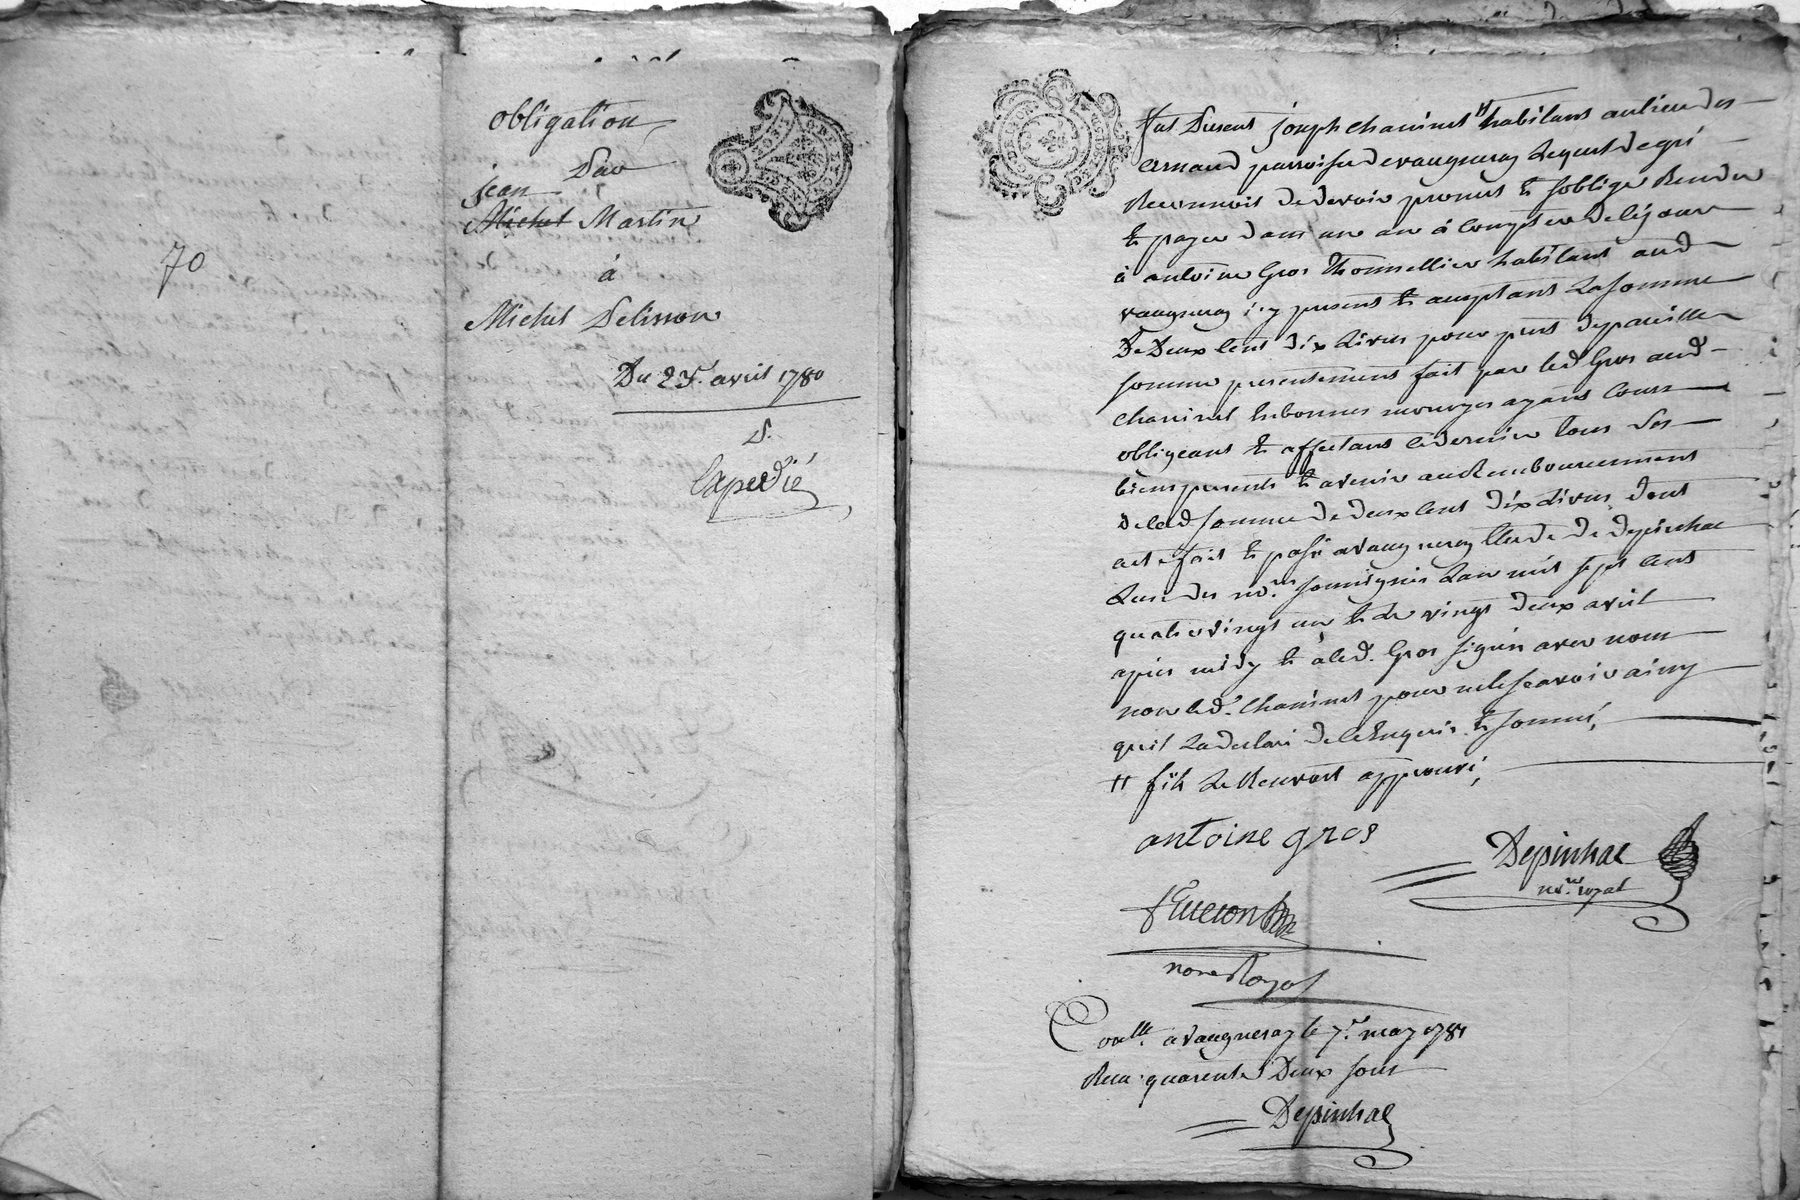 obligation
Par
jean
Michel Martin
à
Michel Pelisson
Du 25. avril 1780
Expedié
70
fut Present joseph chavinet " habitant au lieu des
arnaud parroisse de vaugneray Lequel de gré
Reconnoit de devoir promet et s'oblige Rendre
et payer dans un an à compter de ce jour
à antoine Gros thonnellier habitant aud
vaugneray icy present et acceptant La somme
De Deux cent dix Livres pour pret de pareille
somme presentement fait par led Gros aud
chavinet en bonnes monoyes ayant cours
obligeant et affectant ce dernier tous ses
biens presents et avenir au Remboursement
de lad somme de deux cent dix Livres dont
acte fait et passé a vaugneray Etude de depinhac
L'un des no.res soussignés L'an mil sept cent
quatrevingt un et Le vingt deux avril
après midy et a led. Gros signé avec nous
non led. Chavinet pour ne le scavoir ainsy
qu'il L'a declaré de ce Enquis et sommé,
" fils Le Renvoit approuvé,
antoine gros
Depinhac
no.re royal
nore Royal
Con.lle a vaugneray le 7.e may 1781
Recu quarente Deux sous
Depinhac